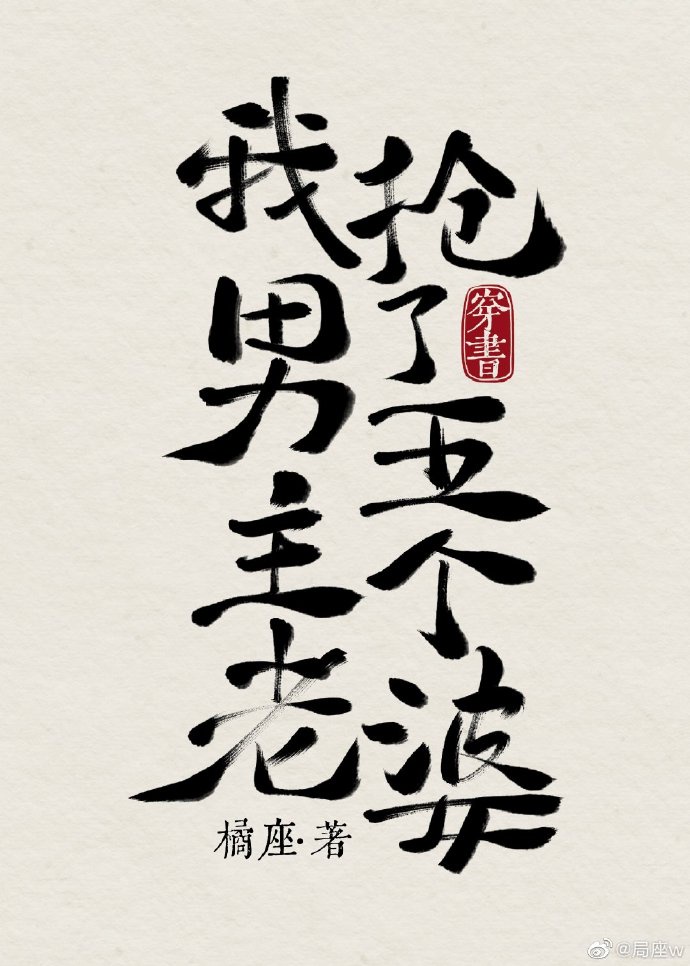 我抢了男主五个老婆
穿書
橘座·著
@局座w